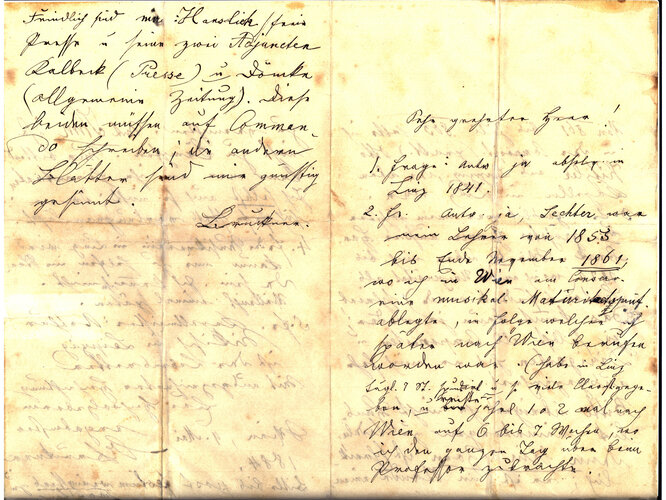 Feindlich sind mir: Hanslick (freie
Presse u seine zwei Adjuncten
Kalbeck (Presse) u Dömke
(allgemeine Zeitung). Diese
beiden müssen auf Comman-
do schreiben; die andern
Blätter sind mir günstig
gesinnt.
Bruckner.
Sehr geehrter Herr!
1. Frage: Antw ja absolv: in
Linz 1841.
2. Fr. Antw: ja, Sechter war
mein Lehrer von 1855
bis Ende November 1861,
wo ich in Wien am Conserv:
eine musikal. Maturitätsprüf.
ablegte, in Folge welcher ich
später nach Wien berufen
worden war. (habe in Linz
tägl. 7 St. u f. viele
ben, u reiste jährl 1 o 2 mal nach
Wien auf 6 bis 7 Wochen, wo
ich den ganzen Tag über beim
Professor zubrachte.